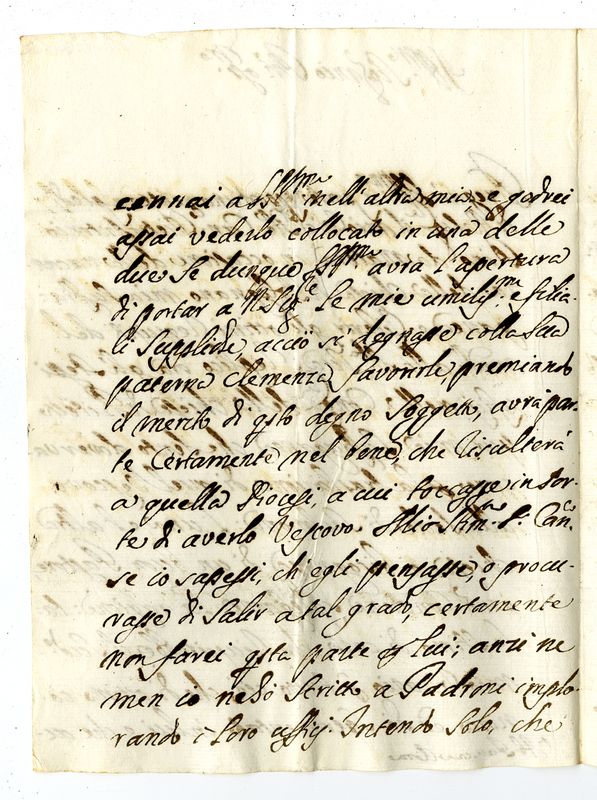 cennai a SS.ma nell'altra mia, e godrei
assai vederlo collocato in una delle
due. Se dunque SS.ma avrà l'apertura
di portar a N. Sig.re le mie umiliss.me e filia-
li suppliche, acciò si degnasse colla sua
paterna clemenza favorirle, premiando
il merito di qsto degno soggetto, avrà par-
te certamente nel bene, che risulterà
a quella Diocesi, a cui toccasse in sor-
te di averlo Vescovo. Mio Stim.mo S.r Can.co
se io sapessi, ch'egli pensasse, o procu-
rasse di salir a tal grado, certamente
non farei qsta parte p lui; anzi ne
men io ne hò scritto a Padroni implo-
rando i loro uffizj. Intendo solo, che